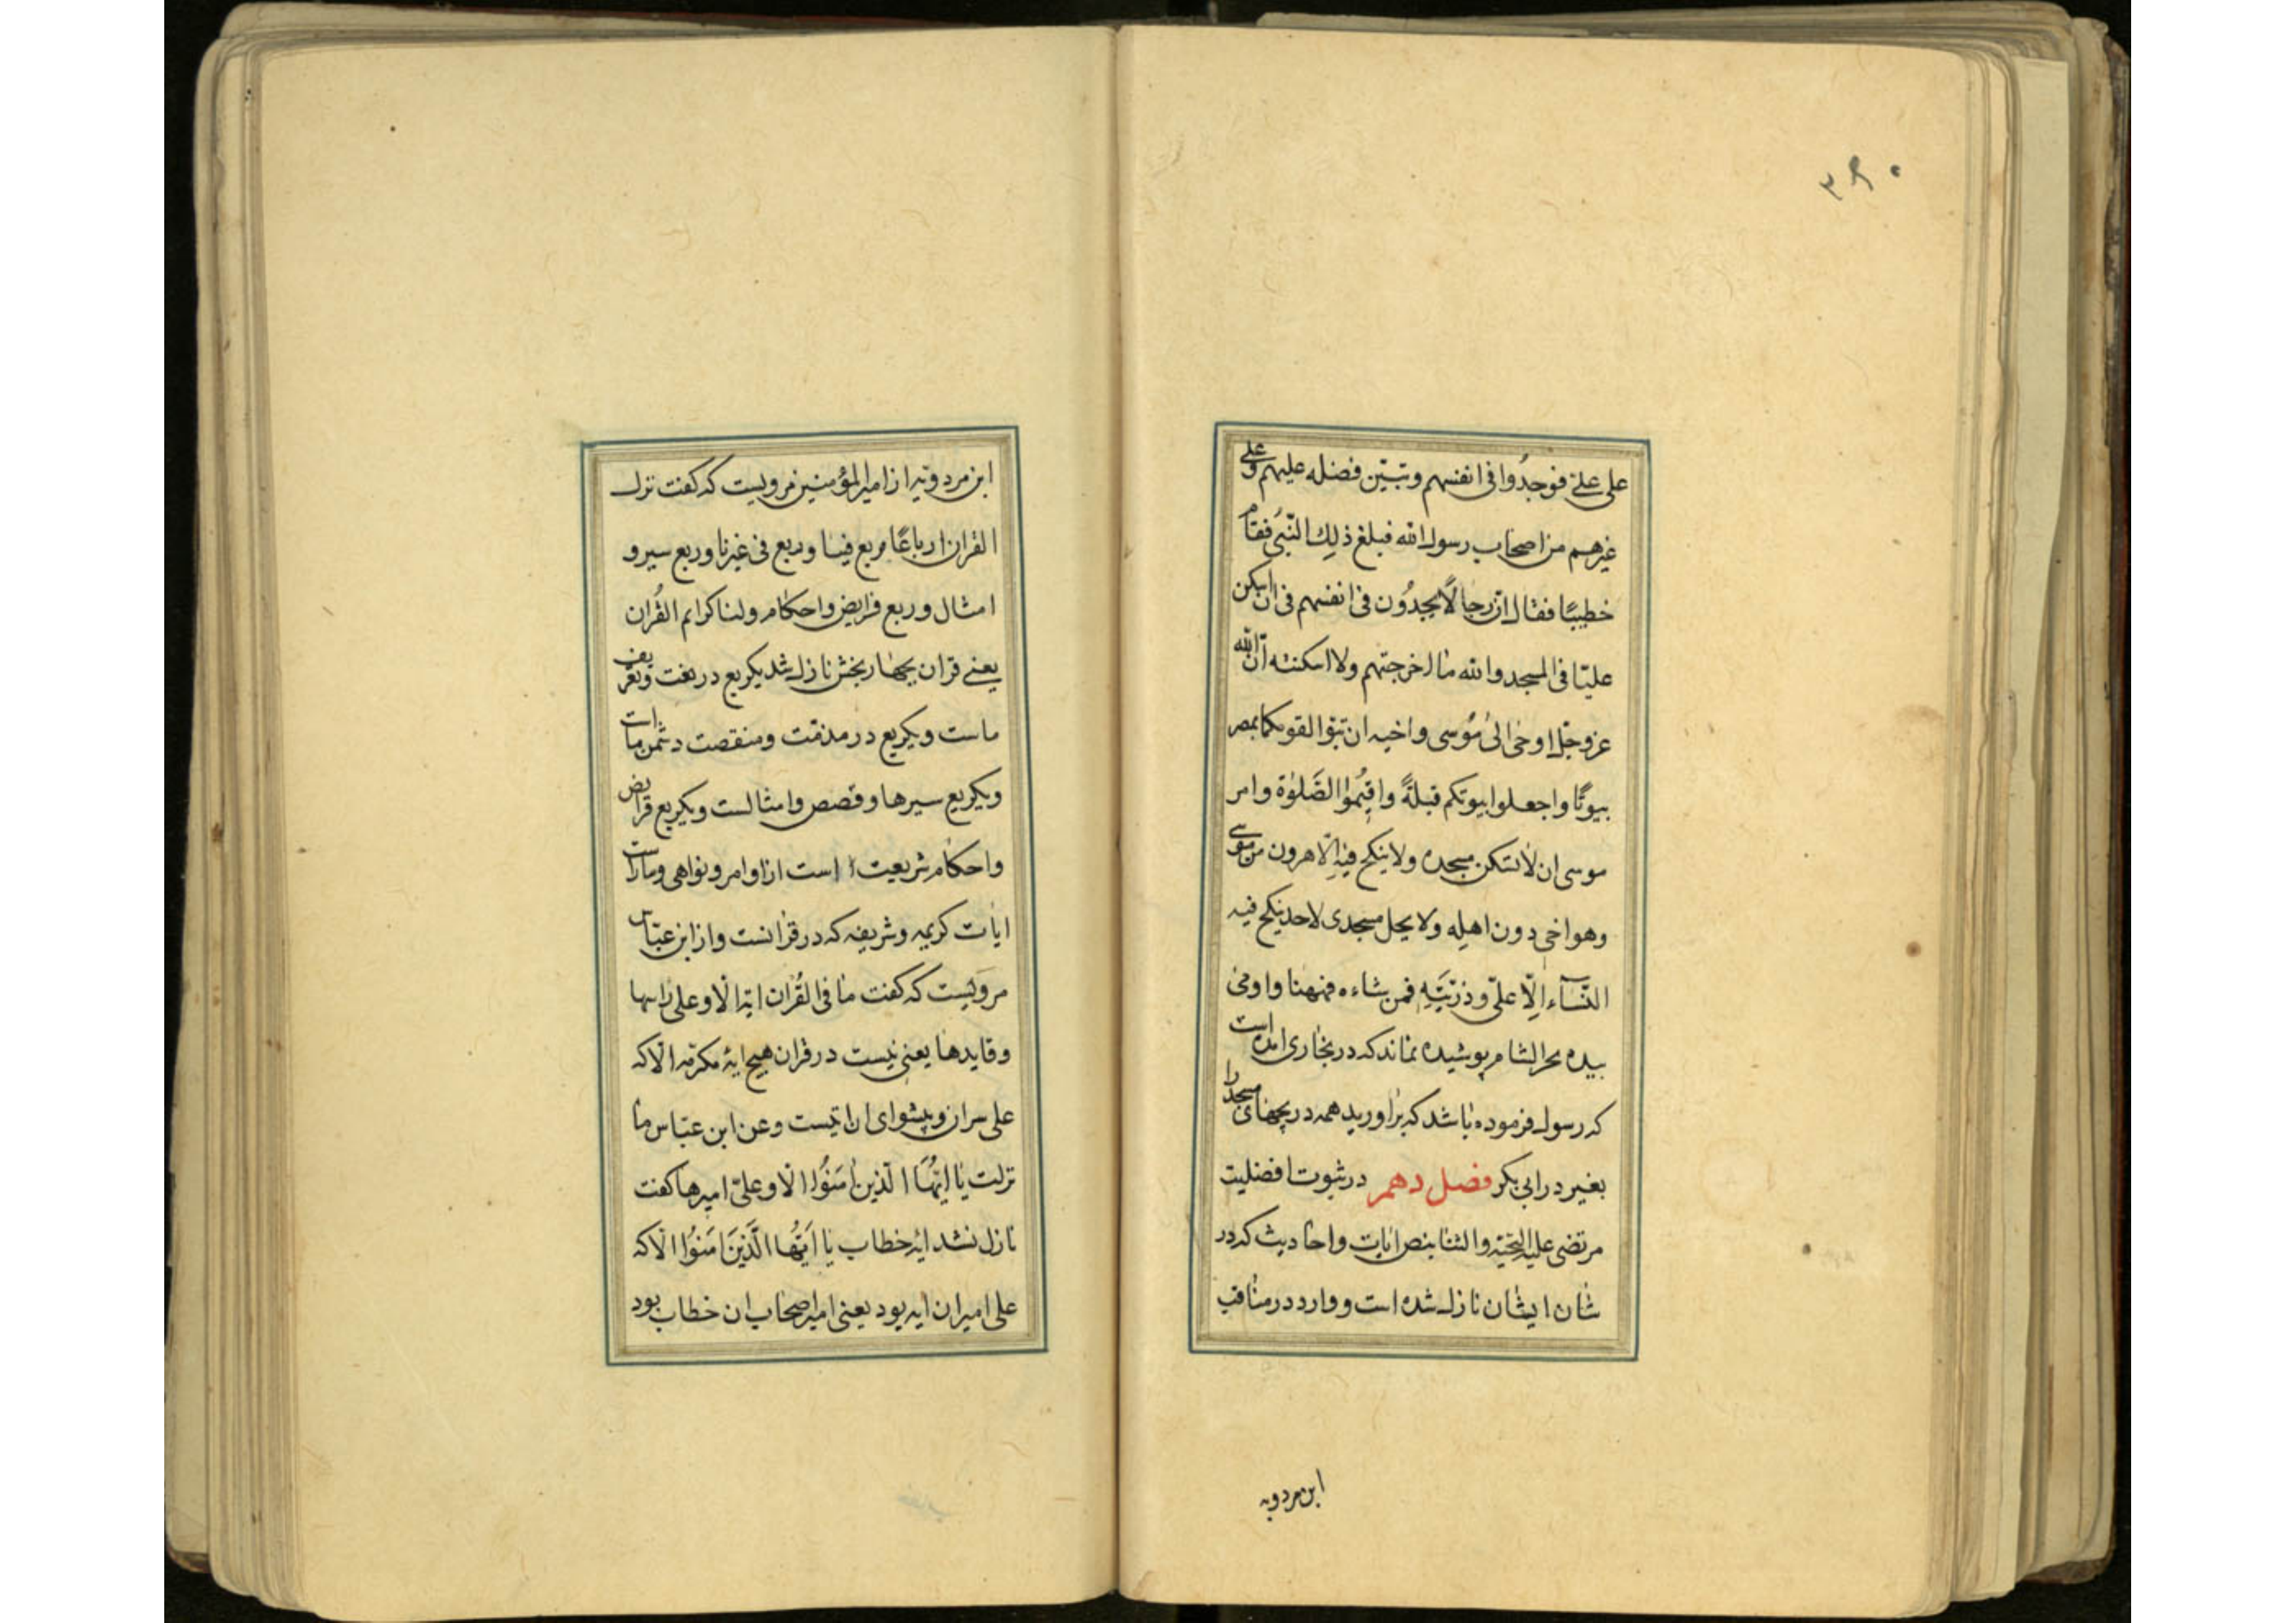 ۳۹۰
علی علیّ فوجدُوا فی انفسهم وتبیّن فضله علیهم وعلی
غیرهم من اصحاب رسول الله فبلغ ذلك النّبی فقام
خطیبًا فقال انّ رجالًا یجدُون فی انفسهم فی ان اسکن
علیّا فی المسجد والله ما اخرجتهم ولا اسکنته انّ الله
عزوجلّ اوحیٰ الیٰ مُوسی واخیه ان تبوّا لقومکما بمصر
بیوتًا واجعلوا بیوتکم قبلةً واقیمُوا الصَّلوٰة وامر
موسی ان لا تسکن مسجده ولا ینکح فیهِ الّا هرون من موسی
وهو اخی دون اهله ولا یحل مسجدی لاحد ینکح فیه
النّسآء الّا علیّ وذرّیّتهِ فمن شاءه فهنا واومیٰ
بیده نحو الشام پوشیده نماند که در بخاری امده است
که رسول فرموده باشد که براورید همه در بچهای مسجد را
بغیر در ابی بکر فصل دهم در ثبوت افضلیت
مرتضی علیه التحیّة والثنا بنص ایات واحادیث که در
شان ایشان نازل شده است ووارد در مناقب
ابن مردویه
ابن مردویه از امیر المؤمنین مرویست که گفت نزل
القران ارباعًا فربع فینا وربع فی غیرنا وربع سیر و
امثال وربع فرایض واحکام ولنا کرایم القُران
یعنے قران بچهار بخش نازل شد یکربع در نعت وتعریف
ماست ویکربع در مذمّت ومنقصت دشمن ماست
ویکربع سیرها وقصص وامثالست ویکربع فرایض
واحکام شریعت است از اوامر ونواهی وماراست
ایات کریمه وشریفه که در قرانست واز ابن عبّاس
مرویست که گفت ما فی القُران ایة الّا وعلی راسها
وقایدها یعنی نیست در قران هیچ ایهٔ مکرّمه الّا که
علی سران وپیشوای ان ایتست وعن ابن عبّاس ما
نزلت یا ایّهَا الّذین اٰمَنُوا الّا وعلیّ امیرها گفت
نازل نشد ایهٔ خطاب یا ایّهَا الَّذینَ اٰمَنُوا الّا که
علی امیر ان ایه بود یعنی امیر اصحاب ان خطاب بود